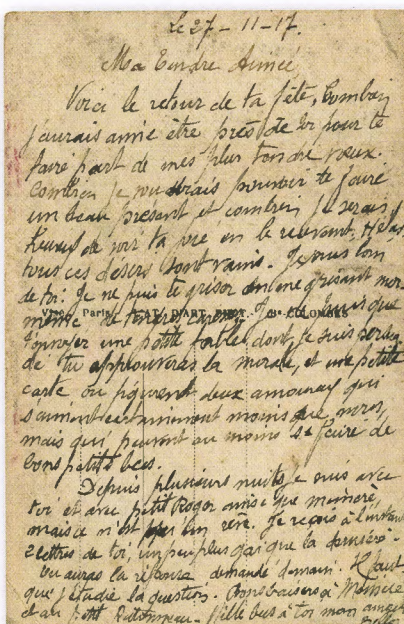 Le 27-11-17.
Ma tendre Aimée
Voici le retour de ta fête, Combien
j'aurais aimé être près de toi pour te
faire part de mes plus tendres vœux.
Combien je voudrais pouvoir te faire
un beau présent et combien je serais
heureux de voir ta joie en le recevant. Hélas,
tous ces désirs sont vains. Je suis loin
de toi. Je ne puis te griser en me grisant moi-
même de
Paris D'ART
t'envoyer une petite fable dont je suis
de tu approuveras la morale, et une petite
carte où figurent deux amoureux qui
s'aiment certainement moins que nous,
mais qui peuvent au moins se faire de
bons petits becs.
Depuis plusieurs nuits je suis avec
toi et avec petit Roger ainsi que
mais ce n'est qu'un rêve. Je reçois à l'instant
2 lettres de toi, un peu plus gai que la dernière.
tu auras la réponse demandé demain. Il faut
que j'étudie la question. Bons baisers à
et au petit Mille bus à toi mon